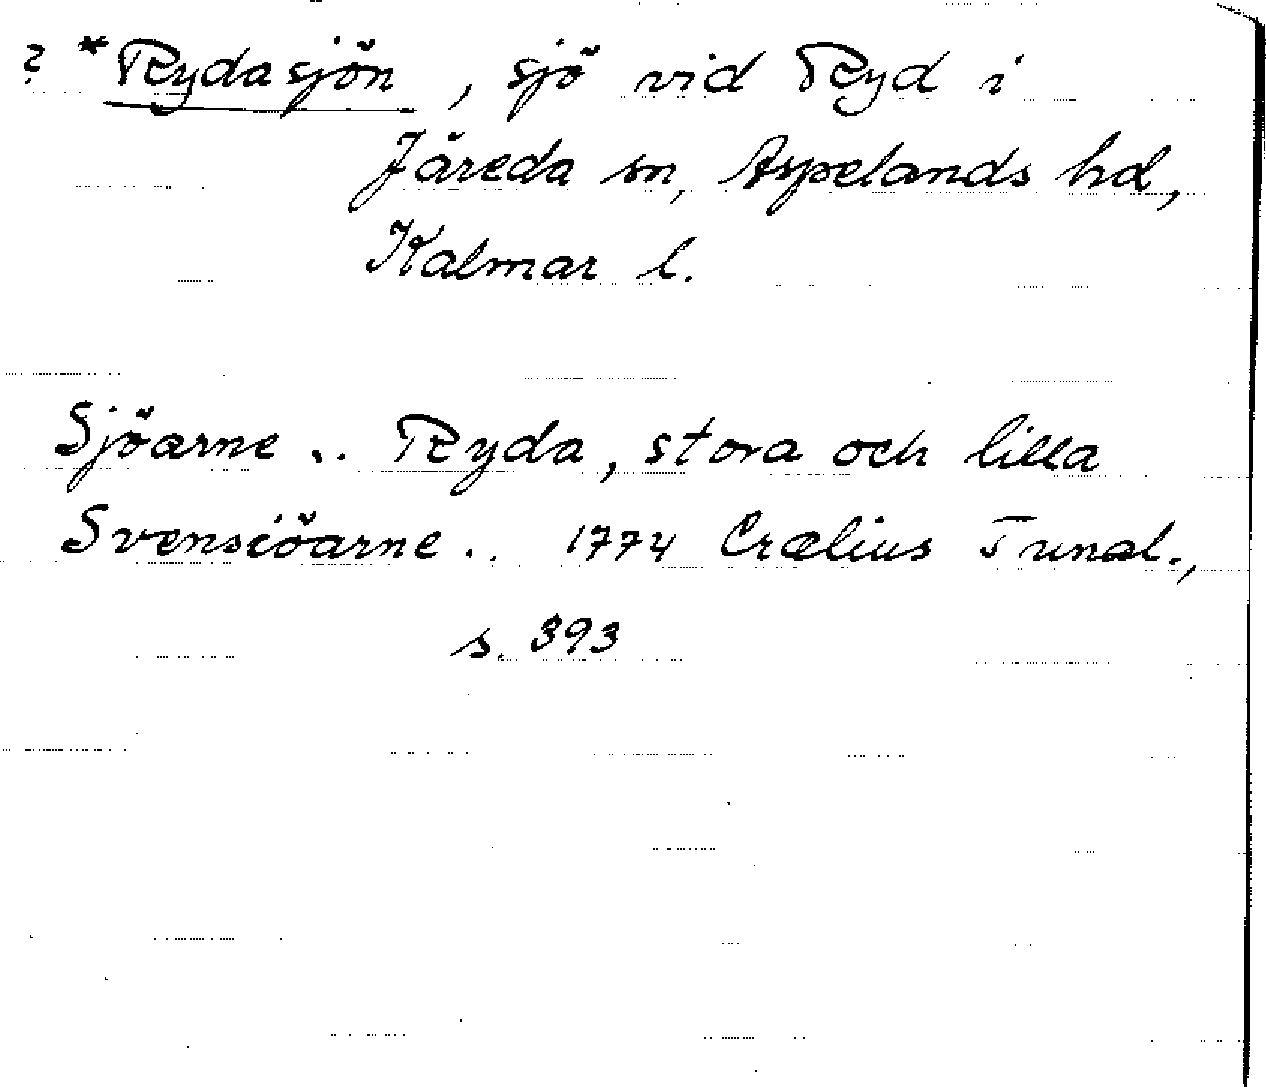 ? *Rydasjön, sjö vid Ryd i
Järeda sn, Aspelands hd,
Kalmar l.
Sjöarne .. Ryda, stora och lilla
Svensiöarne .. 1774 Crælius Tunal.,
s. 393